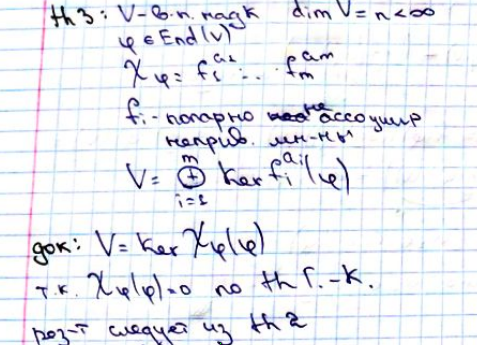 th 3: V - в.п. над K dim V = n < ∞
φ ∈ End(V)
χ_φ = f_1^{a_1} ... f_m^{a_m}
f_i - попарно не ассоциир
неприв. мн-ны
V = ⊕_{i=1}^{m} Ker f_i^{a_i}(φ)
док: V = Ker χ_φ(φ)
т.к. χ_φ(φ)=0 по th Г.-К.
рез-т следует из th 2